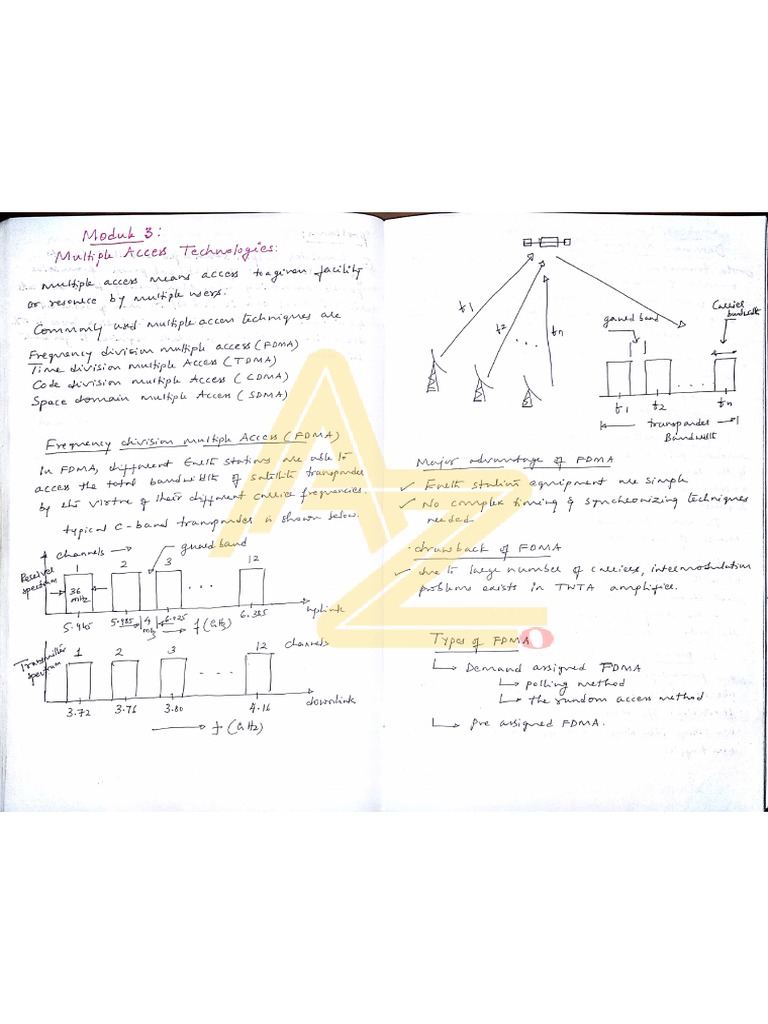 Module 3:
Multiple Access Technologies:
Multiple access means access to a given facility
or resource by multiple users.
Commonly used multiple access techniques are
Frequency division multiple access (FDMA)
Time division Multiple Access (TDMA)
Code division Multiple Access (CDMA)
Space domain multiple Access (SDMA)
Frequency division multiple Access (FDMA)
In FDMA, different Earth stations are able to
access the total bandwidth of satellite transponder
by the virtue of their different carrier frequencies.
typical C-band transponder is shown below.
channels
guard band
Receiver
spectrum
1
2
3
12
36
MHz
5.945
5.985
4
MHz
6.025
f (GHz)
6.385
uplink
Transmitter
spectrum
1
2
3
12
channels
3.72
3.76
3.80
4.16
downlink
f (GHz)
f1
f2
fn
guard band
Carrier
bandwidth
f1
f2
fn
transponder
Bandwidth
Major advantage of FDMA
✓ Earth station equipment are simple
✓ No complex timing & synchronizing techniques
needed
drawback of FDMA
✓ due to large number of carriers, intermodulation
problems exists in TWTA amplifier.
Types of FDMA
Demand assigned FDMA
polling method
the random access method
Pre assigned FDMA.
AZ